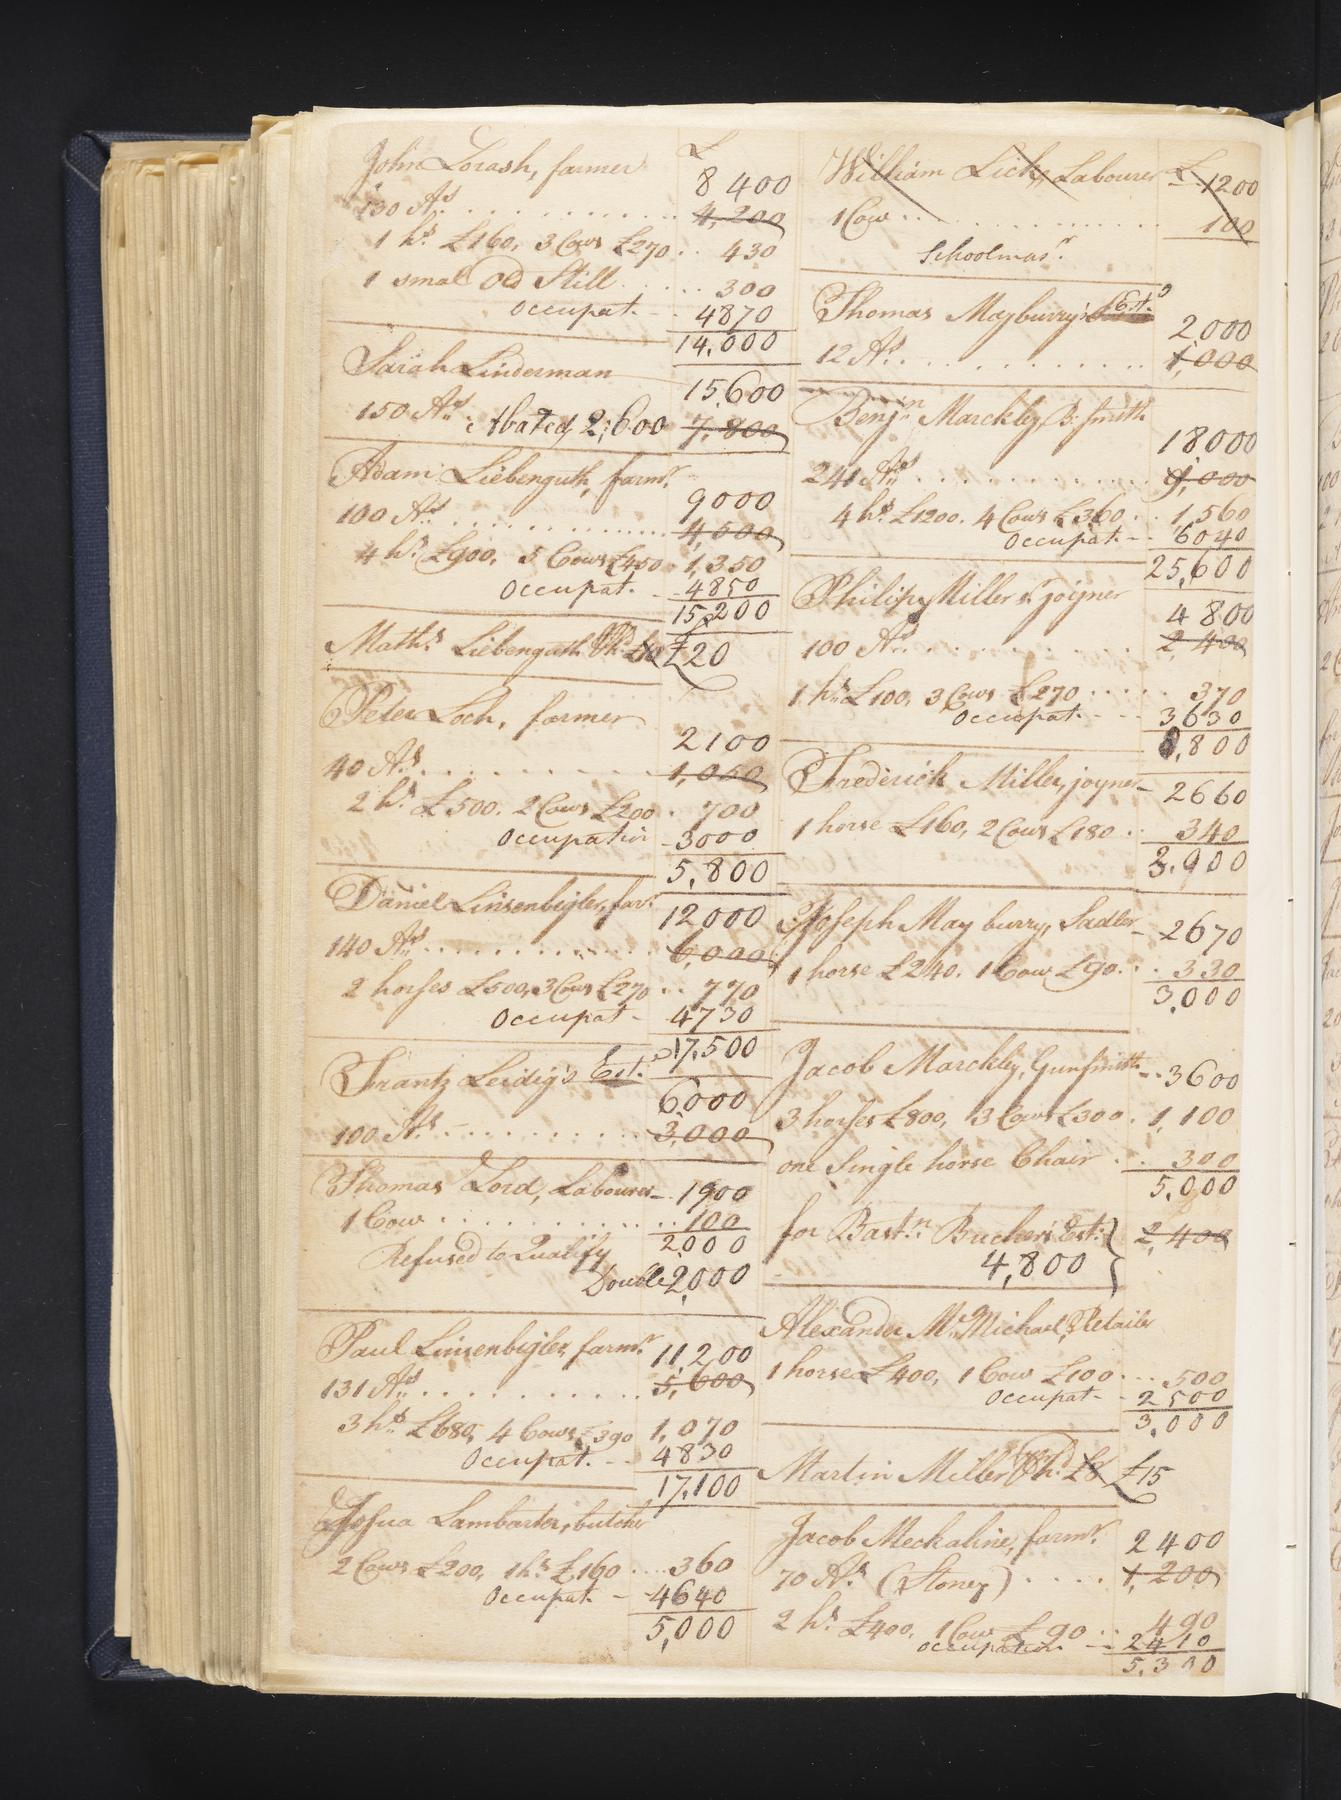 John Lorash, farmer £
8400
130 As. 4,200
1 hs. £160, 3 Cows £270 430
1 smal Old Still 300
Occupat. 4870
14,000
Sarah Linderman
15,600
150 As. Abated 2,600 7,800
Adam Liebenguth, farmr.
9000
100 As. 4,500
4 hs. £900, 5 Cows £450 1,350
Occupat. 4850
15,200
Maths. Liebenguth £20
Peter Loch, farmer
2100
40 As. 1,050
2 hs. £500. 2 Cows £200 700
Occupation 3000
5,800
Daniel Linsenbigler, far.
12000
140 As. 6,000
2 horses £500, 3 Cows £270 770
Occupat 4730
17,500
Frantz Leidig's Est.
6000
100 As. 3,000
Thomas Lord, Labourer 1900
1 Cow 100
2000
Refused to Qualify
Double 2,000
Paul Linsenbigler, farmr. 11,200
131 As. 5,600
3 hs. £680, 4 Cows £390 1,070
Occupat. 4830
17,100
Josua Lambarter, butcher
2 Cows £200, 1 hs. £160 360
Occupat. 4640
5,000
William Lick, Labourer £1200
1 Cow 100
Schoolmasr.
Thomas Mayburry's Est.
2000
12 As. 1,000
Benjn. Marckley, B. Smith
18000
241 As. 9,000
4 hs. £1200. 4 Cows £360 1,560
Occupat. 6040
25,600
Philip Miller Sr. joyner
4800
100 As. 2,400
1 hs. £100, 3 Cows £270 370
Occupat. 3630
8,800
Frederick Miller, joyner 2660
1 horse £160, 2 Cows £180 340
3,900
Joseph Mayburry, Sadler 2670
1 horse £240. 1 Cow £90 330
3,000
Jacob Marckley, Gunsmith 3600
3 horses £800, 3 Cows £300 1,100
one Single horse Chair 300
5,000
for Bastn. Bucher's Est: 2,400
4,800
Alexander McMichael, Retailer
1 horse £400, 1 Cow £100 500
Occupat 2500
3,000
Martin Miller £8 £15
Jacob Meckaline, farmr. 2400
70 As. (Stoney) 1,200
2 hs. £400, 1 Cow £90 490
Occupation 2410
5,300